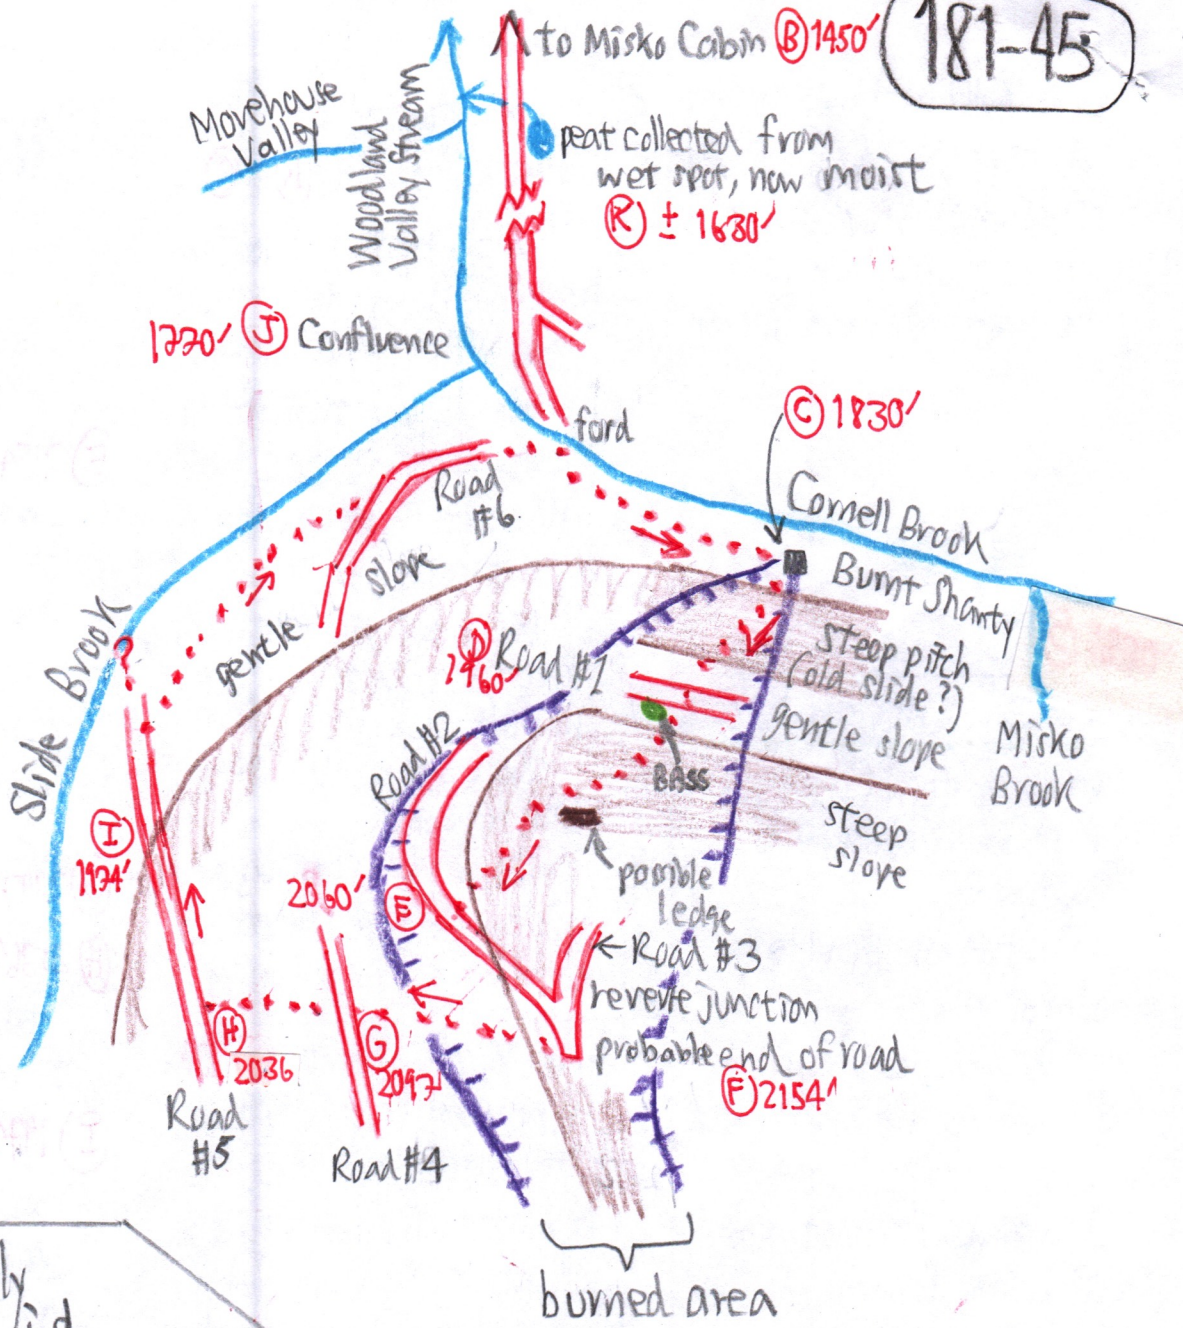 181-45
to Misko Cabin Ⓑ 1450′
Morehouse
Valley
Woodland
Valley Stream
peat collected from
wet spot, now moist
Ⓚ ± 1630′
1770′ Ⓙ Confluence
ford
Ⓒ 1830′
Cornell Brook
Road
#6
Burnt Shanty
gentle slope
Slide Brook
Ⓓ Road #1
1960′
steep pitch
(old slide?)
gentle slope
Misko
Brook
Road #2
BASS
steep
slope
Ⓘ
1974′
possible
ledge
2060′
Ⓔ
← Road #3
reverse junction
probable end of road
Ⓕ 2154′
Ⓗ
2036
Ⓖ
2097′
Road
#5
Road #4
burned area
ly